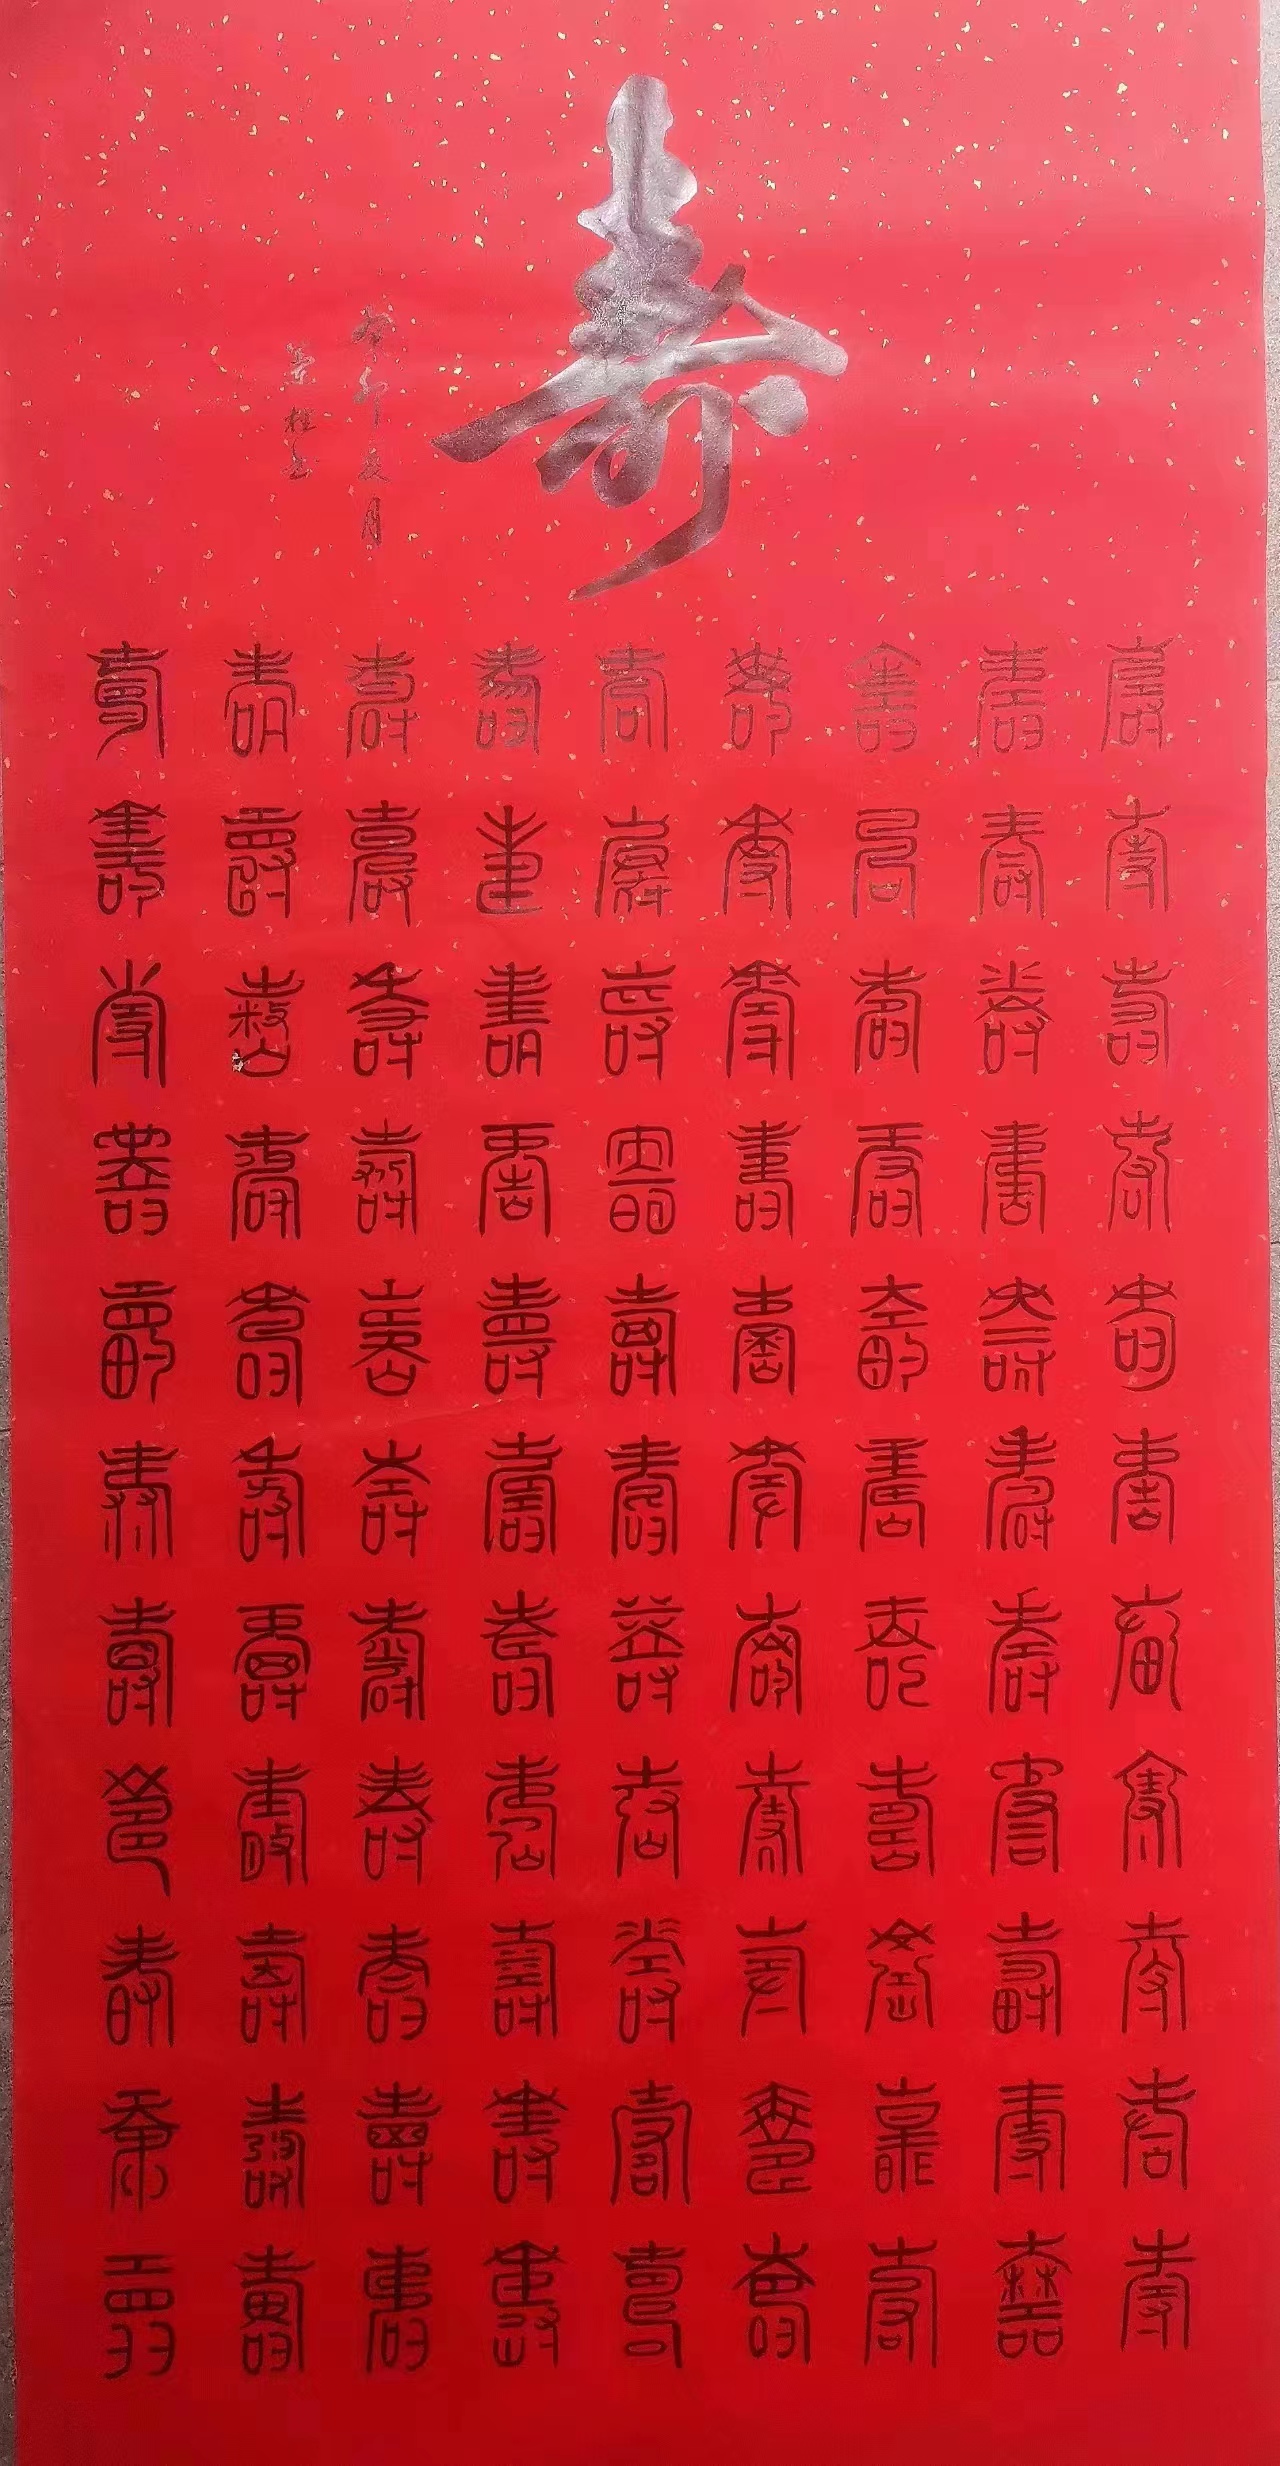 寿
癸卯夏月
壽壽壽壽壽壽壽壽壽壽壽
壽壽壽壽壽壽壽壽壽壽壽
壽壽壽壽壽壽壽壽壽壽壽
壽壽壽壽壽壽壽壽壽壽壽
壽壽壽壽壽壽壽壽壽壽壽
壽壽壽壽壽壽壽壽壽壽壽
壽壽壽壽壽壽壽壽壽壽壽
壽壽壽壽壽壽壽壽壽壽壽
壽壽壽壽壽壽壽壽壽壽壽